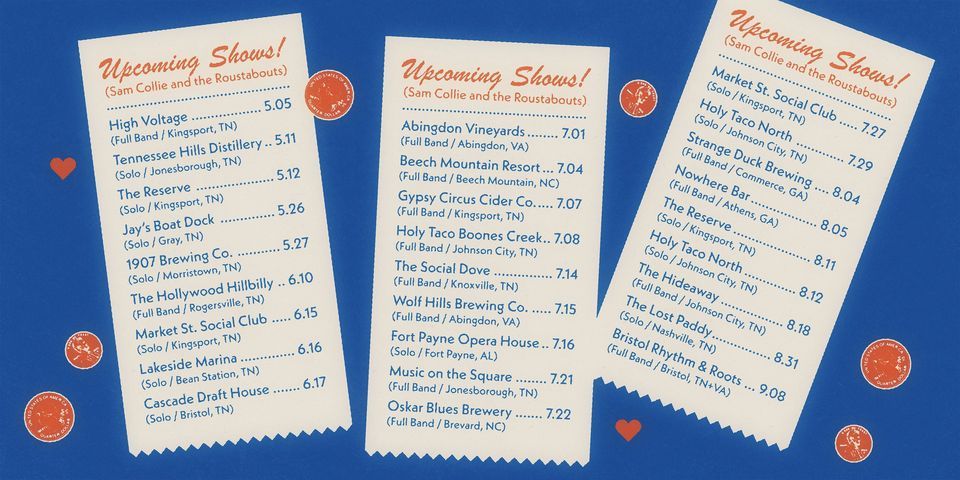 Upcoming Shows!
(Sam Collie and the Roustabouts)
High Voltage ................ 5.05
(Full Band / Kingsport, TN)
Tennessee Hills Distillery .. 5.11
(Solo / Jonesborough, TN)
The Reserve ................ 5.12
(Solo / Kingsport, TN)
Jay's Boat Dock ............ 5.26
(Solo / Gray, TN)
1907 Brewing Co. .......... 5.27
(Solo / Morristown, TN)
The Hollywood Hillbilly .. 6.10
(Full Band / Rogersville, TN)
Market St. Social Club ..... 6.15
(Solo / Kingsport, TN)
Lakeside Marina ............ 6.16
(Solo / Bean Station, TN)
Cascade Draft House ....... 6.17
(Solo / Bristol, TN)
Upcoming Shows!
(Sam Collie and the Roustabouts)
Abingdon Vineyards ........ 7.01
(Full Band / Abingdon, VA)
Beech Mountain Resort ... 7.04
(Full Band / Beech Mountain, NC)
Gypsy Circus Cider Co. .... 7.07
(Full Band / Kingsport, TN)
Holy Taco Boones Creek .. 7.08
(Full Band / Johnson City, TN)
The Social Dove ............ 7.14
(Full Band / Knoxville, TN)
Wolf Hills Brewing Co. ..... 7.15
(Full Band / Abingdon, VA)
Fort Payne Opera House .. 7.16
(Solo / Fort Payne, AL)
Music on the Square ........ 7.21
(Full Band / Jonesborough, TN)
Oskar Blues Brewery ....... 7.22
(Full Band / Brevard, NC)
Upcoming Shows!
(Sam Collie and the Roustabouts)
Market St. Social Club ..... 7.27
(Solo / Kingsport, TN)
Holy Taco North ............ 7.29
(Solo / Johnson City, TN)
Strange Duck Brewing .... 8.04
(Full Band / Commerce, GA)
Nowhere Bar ................ 8.05
(Full Band / Athens, GA)
The Reserve ................ 8.11
(Solo / Kingsport, TN)
Holy Taco North ............ 8.12
(Solo / Johnson City, TN)
The Hideaway ............... 8.18
(Full Band / Johnson City, TN)
The Lost Paddy ............. 8.31
(Solo / Nashville, TN)
Bristol Rhythm & Roots ... 9.08
(Full Band / Bristol, TN+VA)
UNITED STATES OF AMERICA
QUARTER DOLLAR
UNITED STATES OF AMERICA
QUARTER DOLLAR
UNITED STATES OF AMERICA
QUARTER DOLLAR